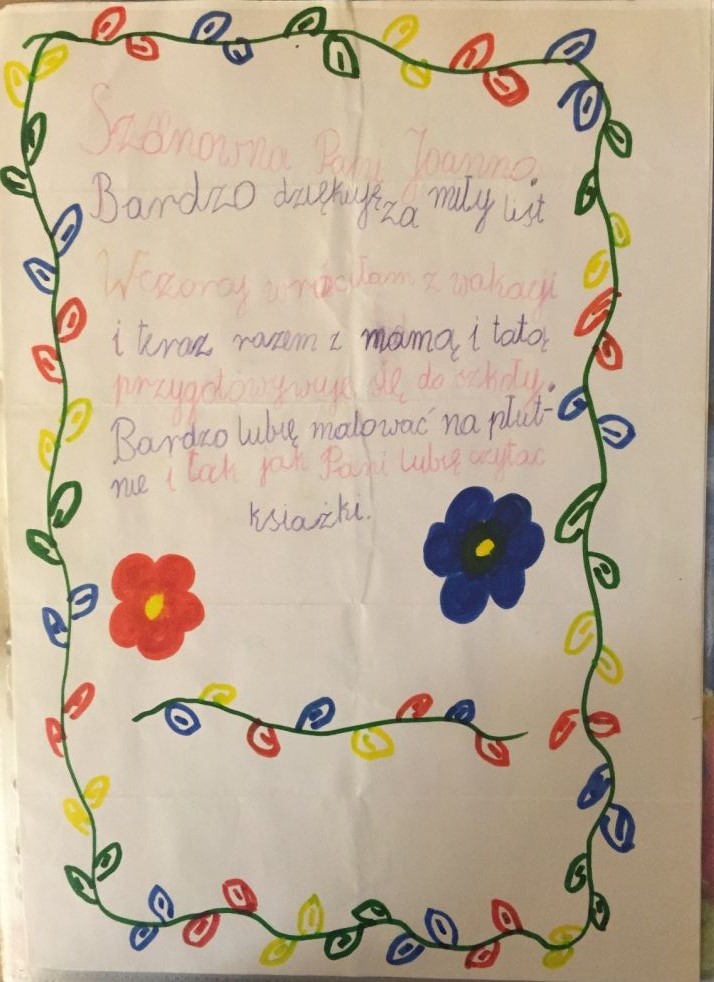 Szanowna Pani Joanno.
Bardzo dziękuję za miły list
Wczoraj wróciłam z wakacji
i teraz razem z mamą i tatą
przygotowywuje się do szkoły.
Bardzo lubię malować na płut-
nie i tak jak Pani lubię czytac
ksiażki.